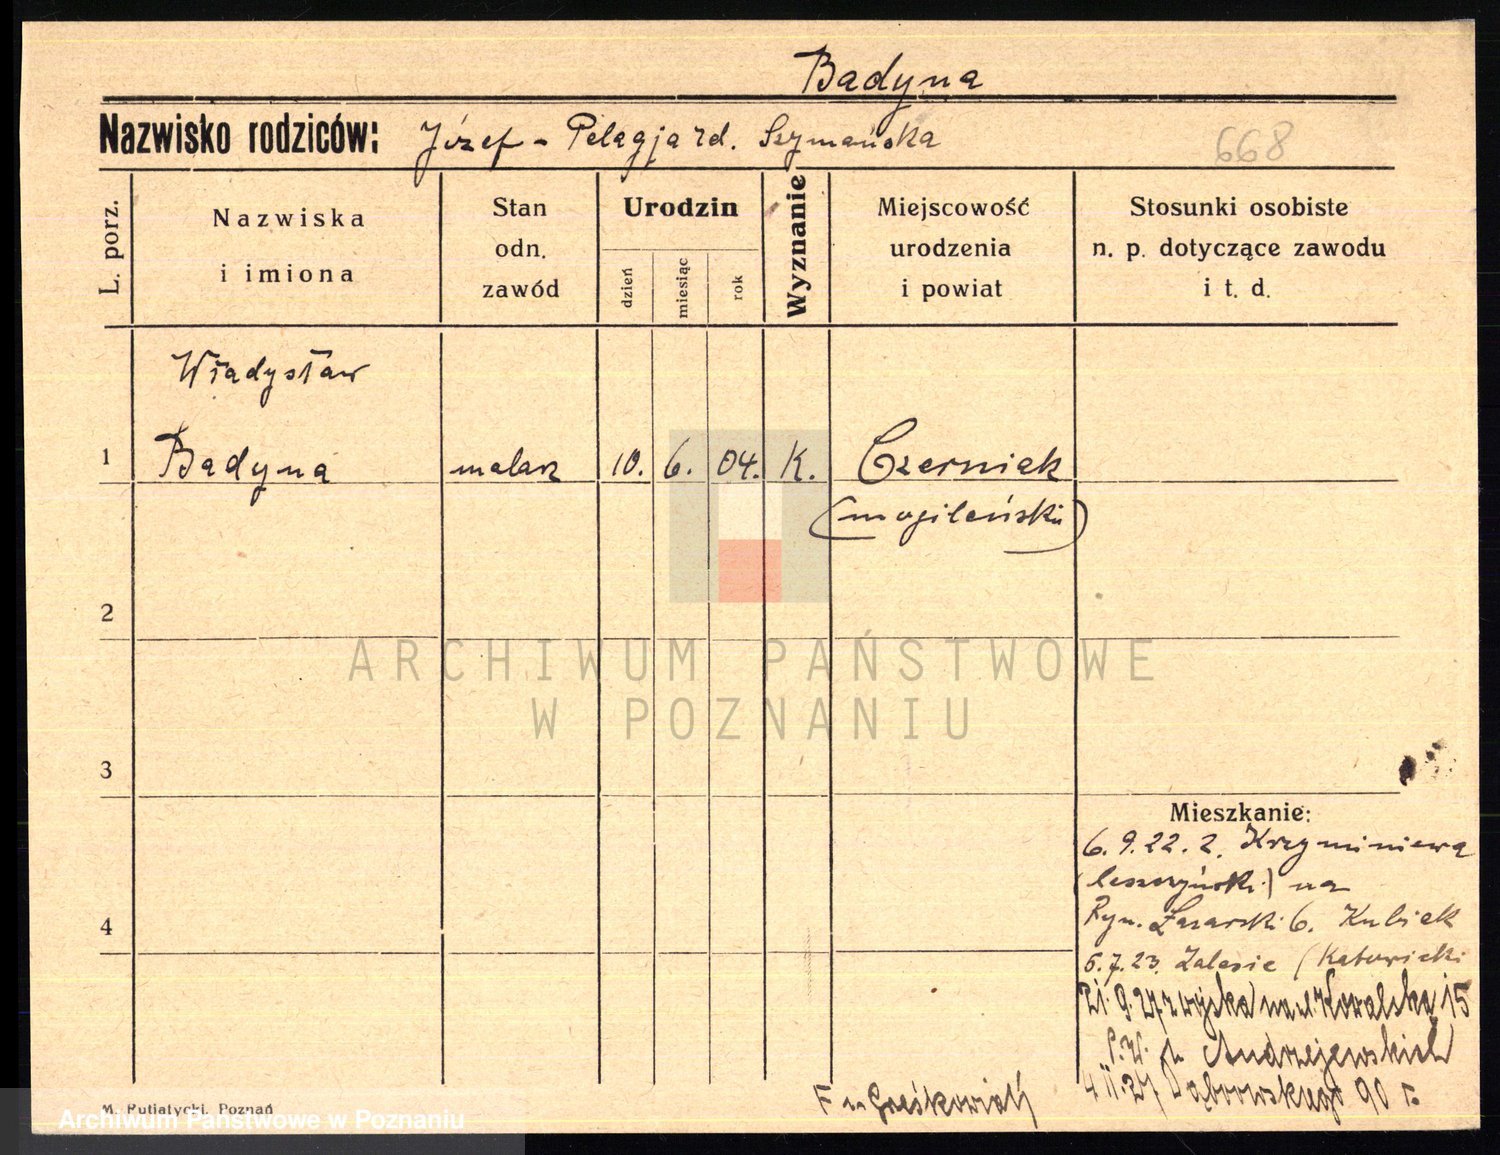 Badyna
Nazwisko rodziców: Józef - Pelagja rd. Szymańska 668
L. porz.
Nazwiska
i imiona
Stan
odn.
zawód
Urodzin
dzień
miesiąc
rok
Wyznanie
Miejscowość
urodzenia
i powiat
Stosunki osobiste
n. p. dotyczące zawodu
i t. d.
Władysław
1 Badyna malarz 10. 6. 04. K. Czerniak
(mogileński)
2
ARCHIWUM PAŃSTWOWE
W POZNANIU
3
Mieszkanie:
6.9.22. z. Krzyminiewa
(leszczyński) na
Ryn. Łazarski 6. Kubiak
4
5.7.23. Zalesie (Katowicki
21.9.27 z wojska na ul. Kowalska 15
Andrzejewskich
Dąbrowskiego 90
M. Putiatycki, Poznań
Archiwum Państwowe w Poznaniu